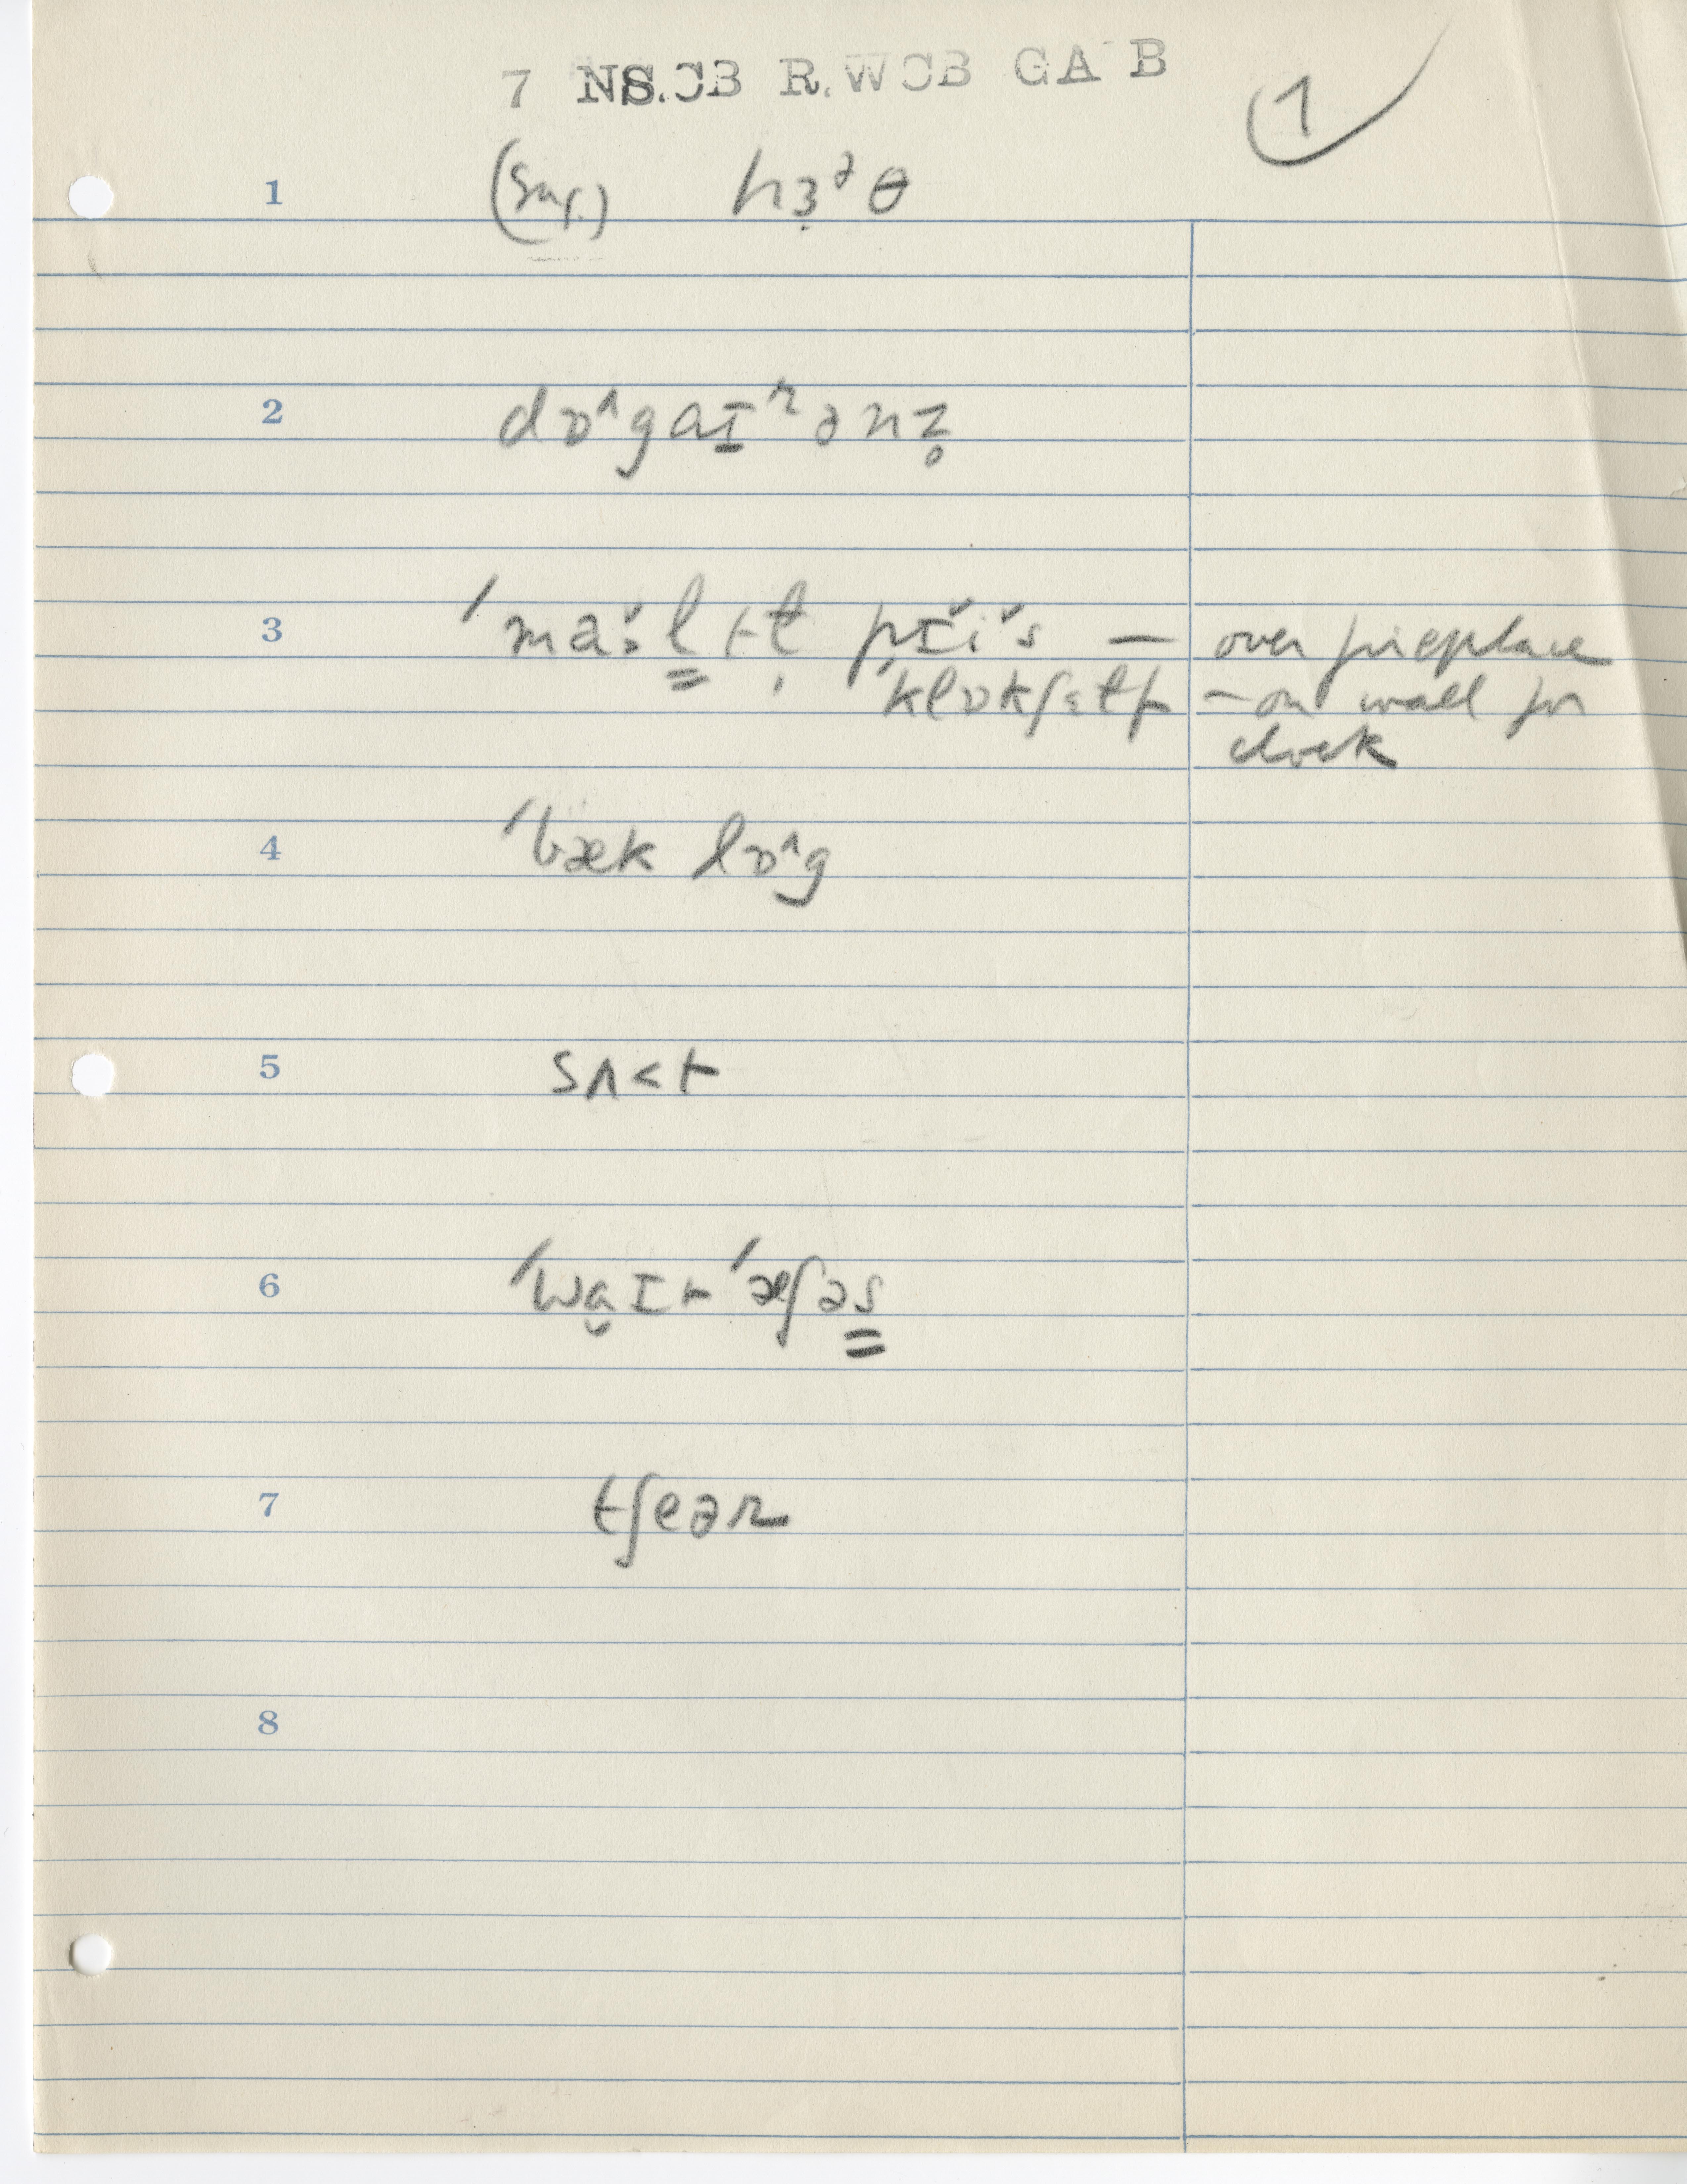 7 NS.CB R.WCB GA B
1
1 (Sug.) hɜ̣ᵊθ
2 dɒ^gaɪ̱ʳənz̥
3 ˈma˘·l̳ ƚt̩ pɪ˘i˘s — over fireplace
ˈklɒkʃɛlf — on wall for
clock
4 ˈbæk lɒ^g
5 sʌ<t
6 ˈwa̮ɪt ˈæʃəs̳
7 tʃeər
8